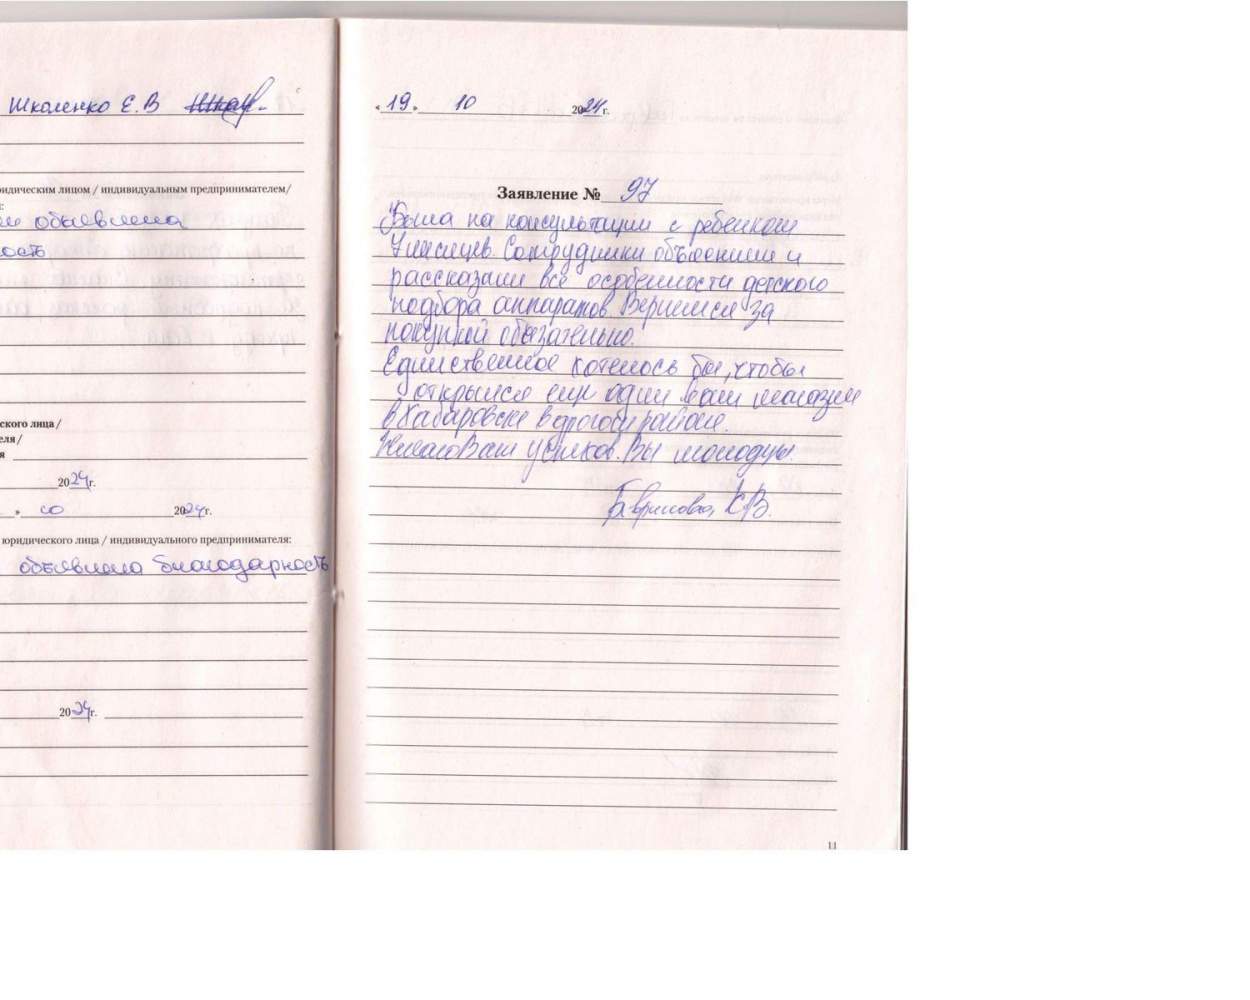 Школенко Е.В
ридическим лицом / индивидуальным предпринимателем/
объявлена
ость
ского лица /
еля /
я
2024г.
» 2024г.
юридического лица / индивидуального предпринимателя:
объявлена благодарность
2024г.
«19» 10 2024г.
Заявление № 97
Была на консультации с ребенком
7 месяцев. Сотрудники объяснили и
рассказали все особенности детского
подбора аппаратов. Вернемся за
покупкой обязательно.
Единственное хотелось бы, чтобы
открылся еще один ваш магазин
в Хабаровске в другом районе.
Желаю Вам успехов. Вы молодцы.
К.В.
11